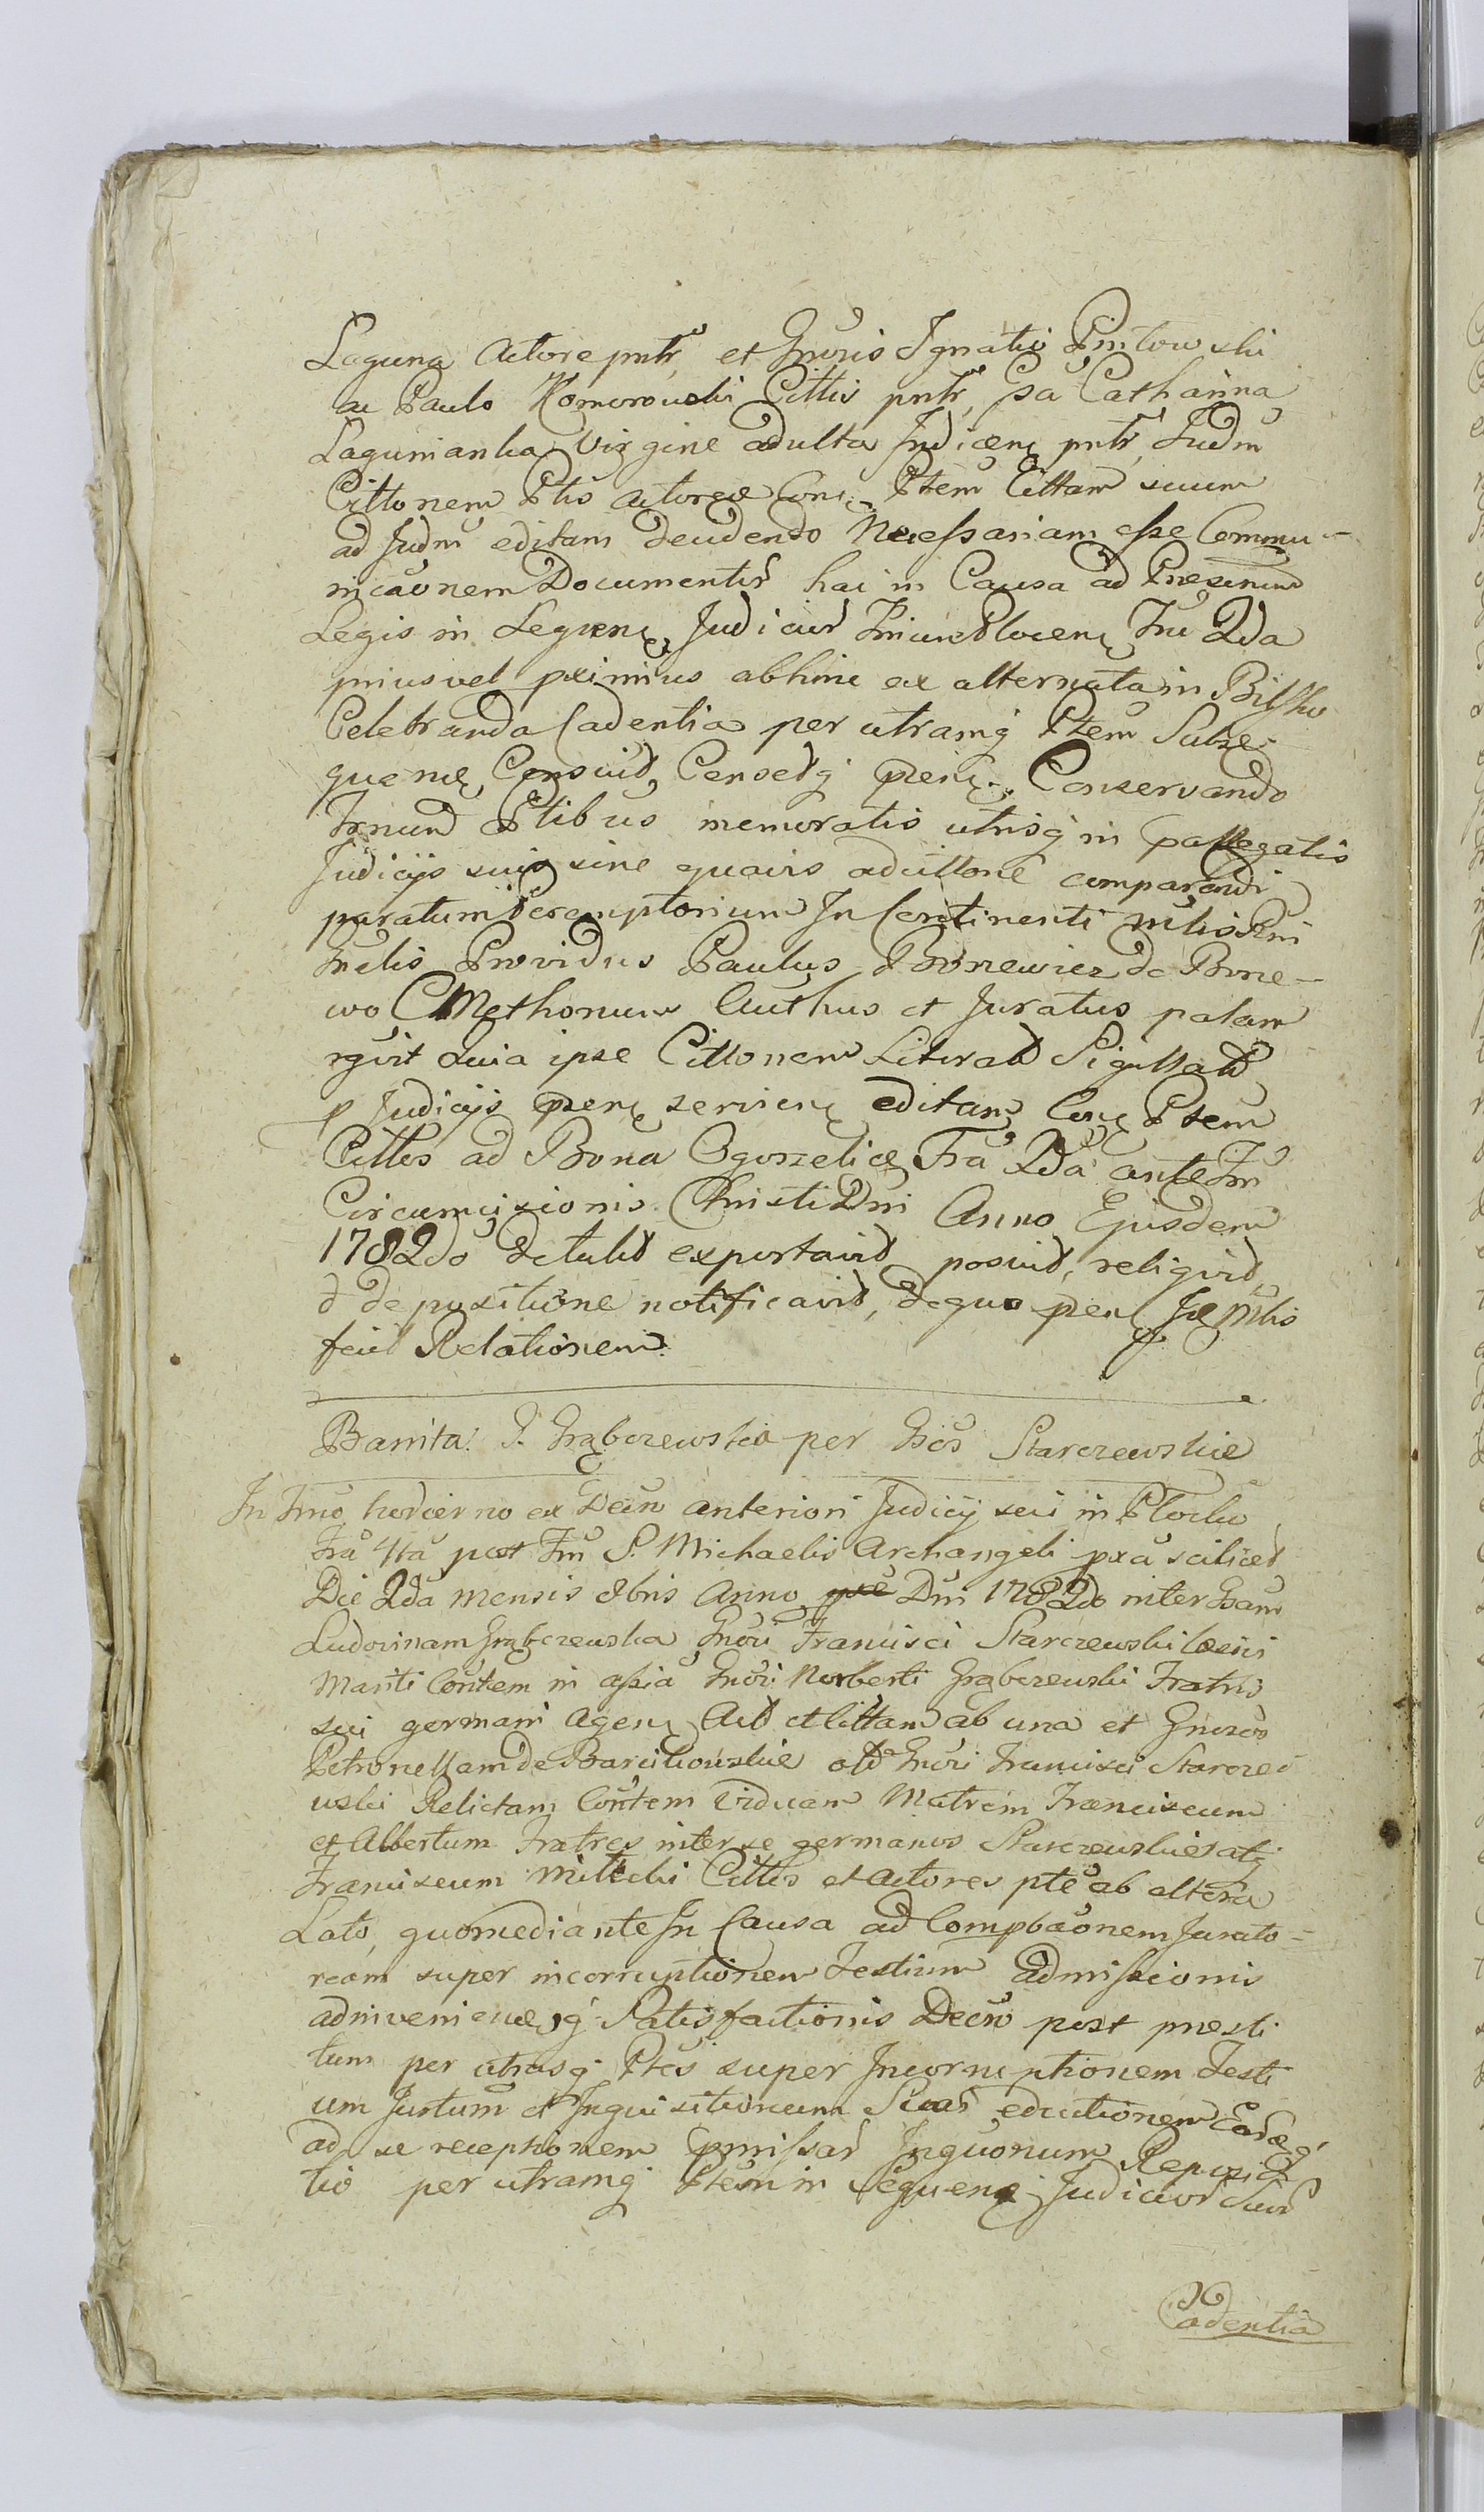 Laguna Actore pntr, et Gnosis Ignatio Pintowski
ac Paulo Komorowski Cittis pntr, Csa Catharina
Lagunianka Virgine adulta Judicen pntr, Judm
Cittonem Ptis Actoreae Con. Ptem Cittam suum
ad Judm editam deudendo Necessariam esse Commu-
nicaonem Documentor hac in Causa ad
Legis in Sequen Judicior Plocen Fra 2da
prius vel pximius abhinc ex alternata in Bilsko
Celebranda Cadentia per utramq Ptem Subse-
quenc, Censuit, Censetq psen. Conservando
Trnum Ptibus memoratis utrisq in pallegatis
Judicijs suis sine quavis adcittone comparendi
paratum peremptorium In Continenti Mlis Rni
Fnelis Providus Paulus Bronewicz de Brone-
wo CMethonum Authus et Juratus palam
rgvit Quia ipse Cittonem Literat Sigillat
p Judicijs psen serviens editam Con Ptem
Cittes ad Bona Ogorzelice Fra 2da ante Fm
Circumcisionis Christi Dni Anno Ejusdem
1782do detulit exportavit posuit, reliquit,
d depositione notificavit, de quo psen Mlis
fecit Relationem.
Banita. G. Grąbczewska per Gsos Starczewskie
In Trno hodierno ex Decto anteriori Judicij sui in Plocku
Fra 4ta post Fm S. Michaelis Archangeli pxa scilicet
Die 2da Mensis 8bris Anno Dni 1782do inter Gsam
Ludovinam Grąbczewska Gnosi Francisci Starczewski
Mariti Contem in assia Gnosi Norberti Grąbczewski Fratris
sui germani Agen Act et Cittam ab una et Gnosos
Petronellam de Barcikowskie olt Gnosi Francisci Starcze-
wski Relictam Contem Viduam Matrem Franciscum
et Albertum Fratres inter se germanos Starczewskies atq
Franciscum Milecki Cittes et Actores pte ab altera
Lato, quo mediante In Causa ad Compbaonem Jurato-
ream super incorruptionem Testium Admissionis
adinvenience, q Satisfactionis Decto post presti
tum per utrasq Ptes super Incorruptionem Testi
um Juttum et Inquisitionum Suar eductionem Eadq
ad se receptionem Inquonum Reposi
tio per utramq Ptem in Sequen Judicior Suor
Cadentia